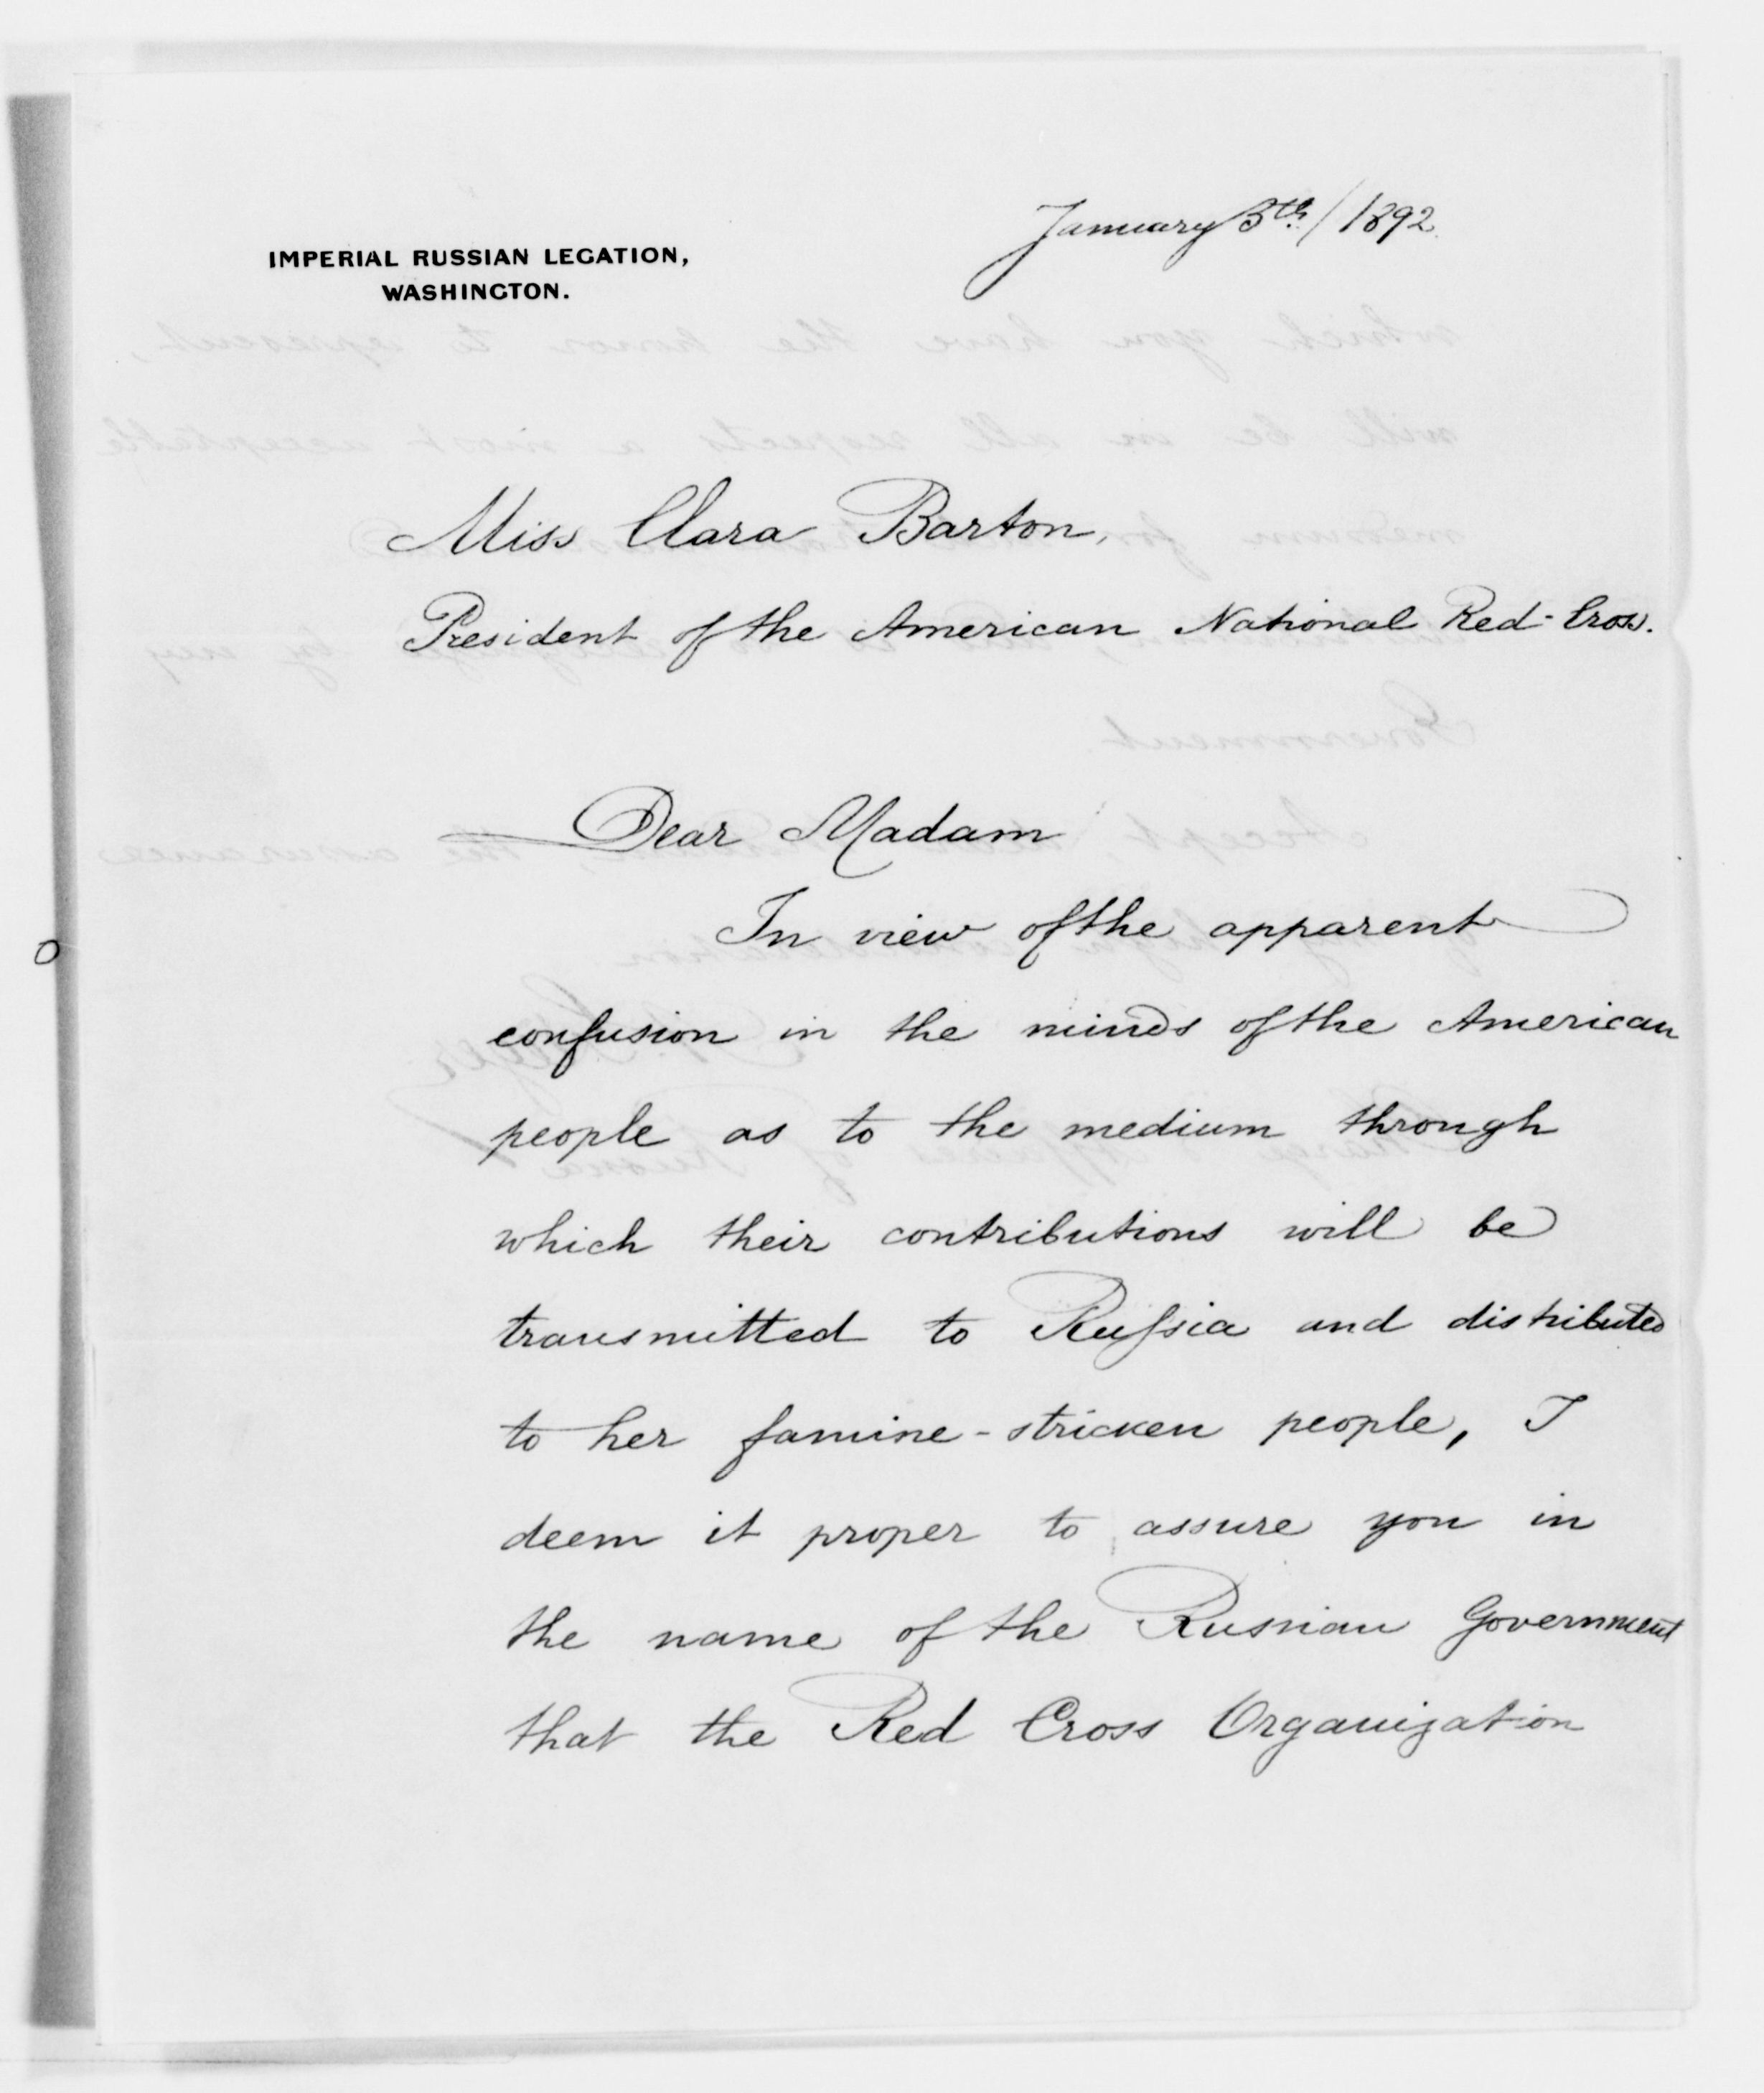 January 5th/1892
IMPERIAL RUSSIAN LEGATION,
WASHINGTON.
Miss Clara Barton,
President of the American National Red-Cross.
Dear Madam
In view of the apparent
confusion in the minds of the American
people as to the medium through
which their contributions will be
transmitted to Russia and distributed
to her famine-stricken people, I
deem it proper to assure you in
the name of the Russian Government
that the Red Cross Organization